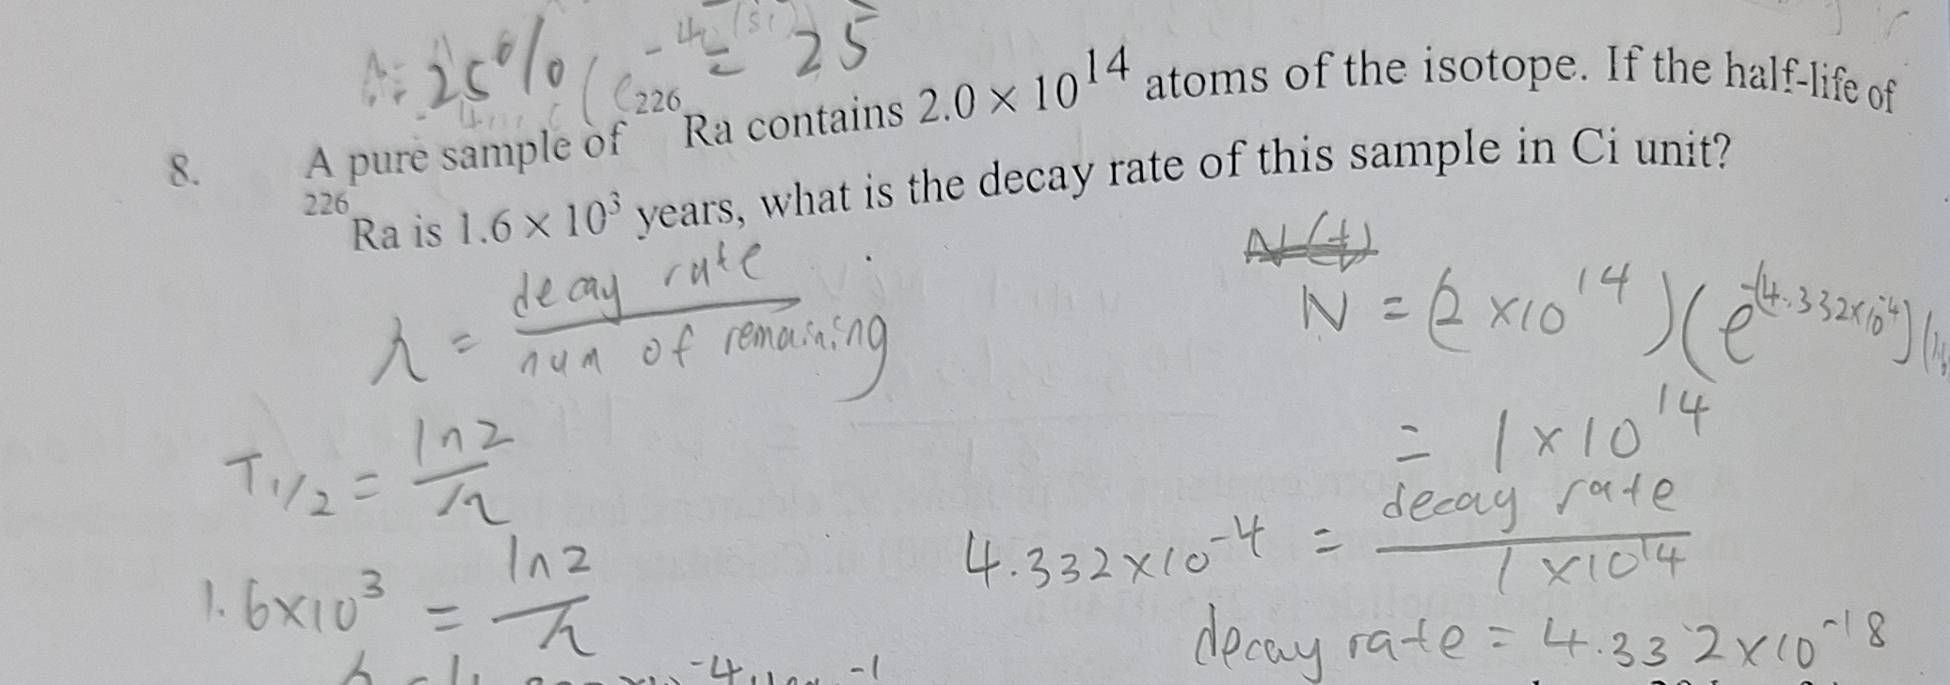 A = 25% = 25
8. A pure sample of ²²⁶Ra contains 2.0 × 10¹⁴ atoms of the isotope. If the half-life of
²²⁶Ra is 1.6 × 10³ years, what is the decay rate of this sample in Ci unit?
λ = decay rate / num of remaining
N(t)
N = (2 × 10¹⁴)(e^-(4.332×10⁻⁴)(
= 1 × 10¹⁴
T1/2 = ln2 / λ
4.332 × 10⁻⁴ = decay rate / 1 × 10¹⁴
1.6 × 10³ = ln2 / λ
decay rate = 4.332 × 10⁻¹⁸